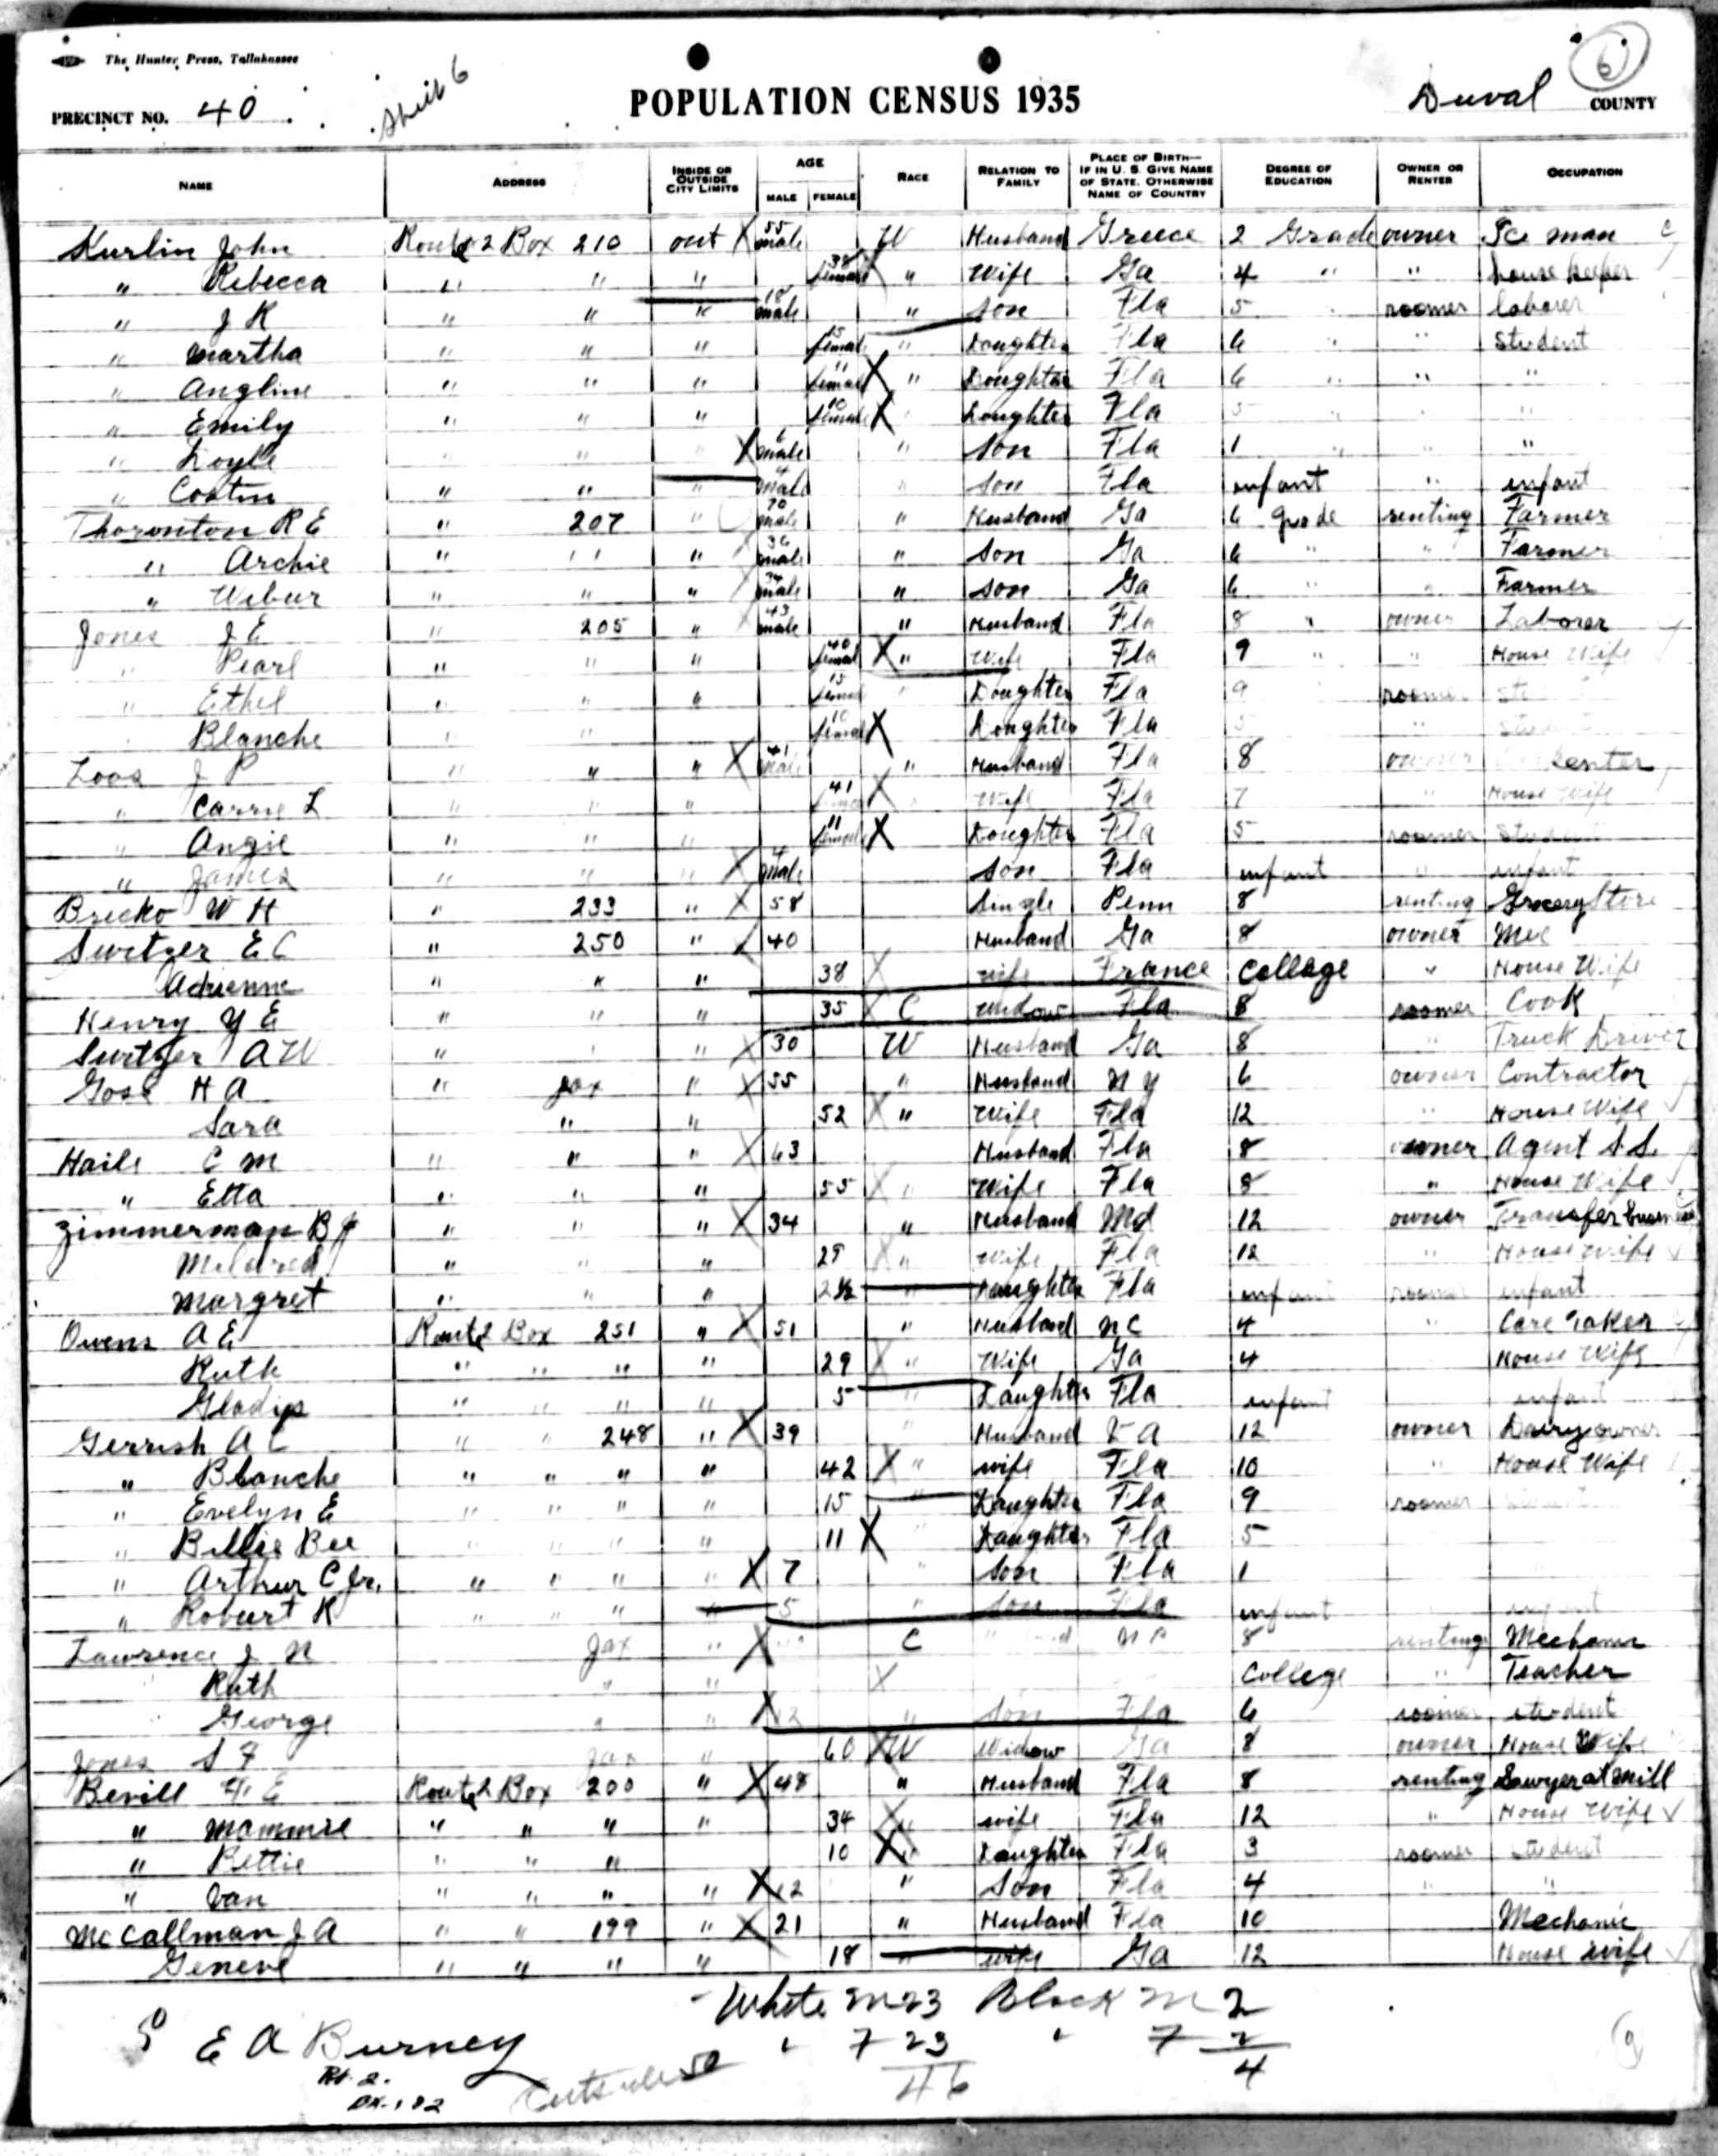 The Hunter Press, Tallahassee
6
PRECINCT NO. 40 Sheet 6 POPULATION CENSUS 1935 Duval COUNTY
NAME ADDRESS INSIDE OR OUTSIDE CITY LIMITS AGE MALE FEMALE RACE RELATION TO FAMILY PLACE OF BIRTH—IF IN U. S. GIVE NAME OF STATE. OTHERWISE NAME OF COUNTRY DEGREE OF EDUCATION OWNER OR RENTER OCCUPATION
Kurlin John Route 2 Box 210 out X 55 male W Husband Greece 2 Grade owner Ice man
" Rebecca " " " 38 female " Wife Ga 4 " " house keeper
" J R " " " 18 male " son Fla 5 roomer laborer
" Martha " " " 15 female " Doughter Fla 6 " " Student
" Angline " " " 11 female X " Doughter Fla 6 " " "
" Emily " " " 10 female X Doughter Fla 5 "
" Loyle " " " X 6 male " son Fla 1 " "
" Coatin " " " 4 male " son Fla infant " infant
Thoronton R E " 207 " 70 male " Husband Ga 6 grade renting Farmer
" Archie " " " 36 male " son Ga 6 " " Farmer
" Wibur " " " 34 male " son Ga 6 " " Farmer
Jones J E " 205 " 43 male " Husband Fla 8 " owner Laborer
" Pearl " " " 40 female X " Wife Fla 9 " " House Wife
" Ethel " " " 15 female " Doughter Fla 9 roomer
Blanche " " 10 female X Doughter Fla 5 "
Loos J P " " " X 41 male " Husband Fla 8 owner
" Carrie L " " " 41 X Wife Fla 7 " House Wife
" Angie " " " 11 female X Doughter Fla 5 roomer Student
" James " " " X 4 male son Fla infant " infant
Bricko W H " 233 " X 58 Single Penn 8 renting Grocery Store
Switzer E C " 250 " 40 Husband Ga 8 owner Mec
Adrienne " " " 38 X wife France College " House Wife
Henry Y E " " " 35 X C widow Fla 8 roomer Cook
Switzer A W " " " X 30 W Husband Ga 8 " Truck Driver
Goss H A " Jax " X 55 " Husband N Y 6 owner Contractor
Sara " " 52 X " Wife Fla 12 " House Wife
Haile C M " " " X 63 Husband Fla 8 owner Agent S.S.
" Etta " " " 55 X " Wife Fla 8 " House Wife
Zimmerman B J " " " X 34 " Husband Md 12 owner Transfer
Mildred " " " 29 X " Wife Fla 12 " House Wife
Margret " " " 2½ " Daughter Fla infant roomer infant
Owens A E Route 2 Box 251 " X 51 " Husband N C 4 " Care Taker
Ruth " " " " 29 X " Wife Ga 4 House Wife
Gladys " " " " 5 " Daughter Fla infant infant
Gerrish A C " " 248 " X 39 " Husband V A 12 owner Dairy owner
" Blanche " " " " 42 X " wife Fla 10 " House Wife
" Evelyn E " " " " 15 " Daughter Fla 9 roomer
" Billie Bee " " " " 11 X " Daughter Fla 5
" Arthur C Jr. " " " " X 7 " son Fla 1
" Robert K " " " " 5 " son Fla infant infant
Lawrence J N Jax " X C N C 8 renting Mechanic
Ruth " " X College " Teacher
George " " X 12 " son Fla 6 roomer student
Jones S F Jax " 60 X W Widow Ga 8 owner House Wife
Bevill E Route 2 Box 200 " X 48 " Husband Fla 8 renting Sawyer at Mill
" Mammie " " " " 34 X " wife Fla 12 " House Wife
" Bettie " " " 10 X " Daughter Fla 3 roomer student
" Van " " " " X 12 " Son Fla 4 " "
McCallman J A " " 199 " X 21 " Husband Fla 10 Mechanic
Geneve " " " " 18 " wife Ga 12 House wife
White M 23 Black M 2
E A Burney " F 23 " F 2
Rt. 2. Outside 50 46 4
Bx. 182